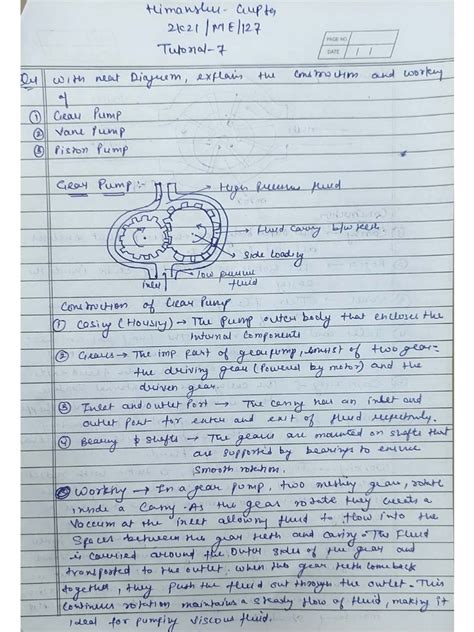 Himanshu Gupta
2K21/ME/127
Tutorial-7
PAGE NO.
DATE
Q1 with neat Diagram, explain the construction and working
of
① Gear Pump
② Vane Pump
③ Piston Pump
Gear Pump :-
High Pressure fluid
Fluid Carry b/w teeth
Side loading
Inlet
low pressure
fluid
Construction of Gear Pump
① Casing (Housing) → The pump outer body that encloses the
internal components
② Gears → The imp part of gear pump, consist of two gear-
the driving gear (Powered by motor) and the
driven gear.
③ Inlet and outlet Port → The casing has an inlet and
outlet port for enter and exit of fluid respectively.
④ Bearing & shafts → The gears are mounted on shafts that
are supported by bearings to ensure
smooth rotation.
Working → In a gear pump, two meshing gear, rotate
inside a Casing. As the gear rotate they creates a
Vaccum at the inlet allowing fluid to flow into the
Spaces between the gear teeth and casing. The Fluid
is carried around the outer sides of the gear and
transported to the outlet. when the gear teeth comeback
together, they push the fluid out through the outlet. This
continuous rotation maintains a steady flow of fluid, making it
ideal for pumping viscous fluid.